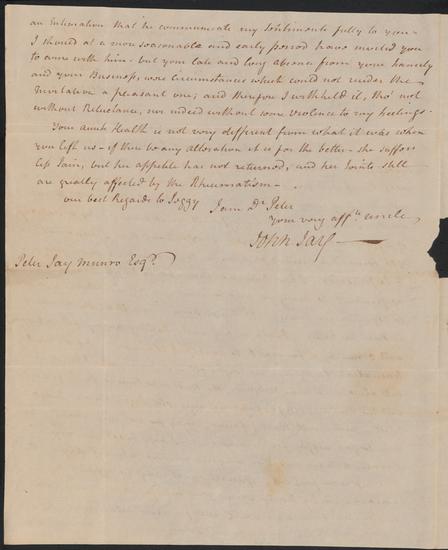 an Intimation that he communicate my Sentiments fully to you -
I should at a more seasonable and early period have invited you
to come with him - but your late and long absence from your Family
and your Business, were circumstances which could not render the
Invitation a pleasant one; and therefore I withheld it, tho' not
without Reluctance, nor indeed without some violence to my feelings.
Your Aunts Health is not very different from what it was when
you left us - if there be any alteration it is for the better - she suffers
less Pain, but her appetite has not returned, and her Joints still
are greatly affected by the Rheumatism -
our best Regards to Peggy I am Dr. Peter
your very affte. uncle
John Jay
Peter Jay Munro Esqr.